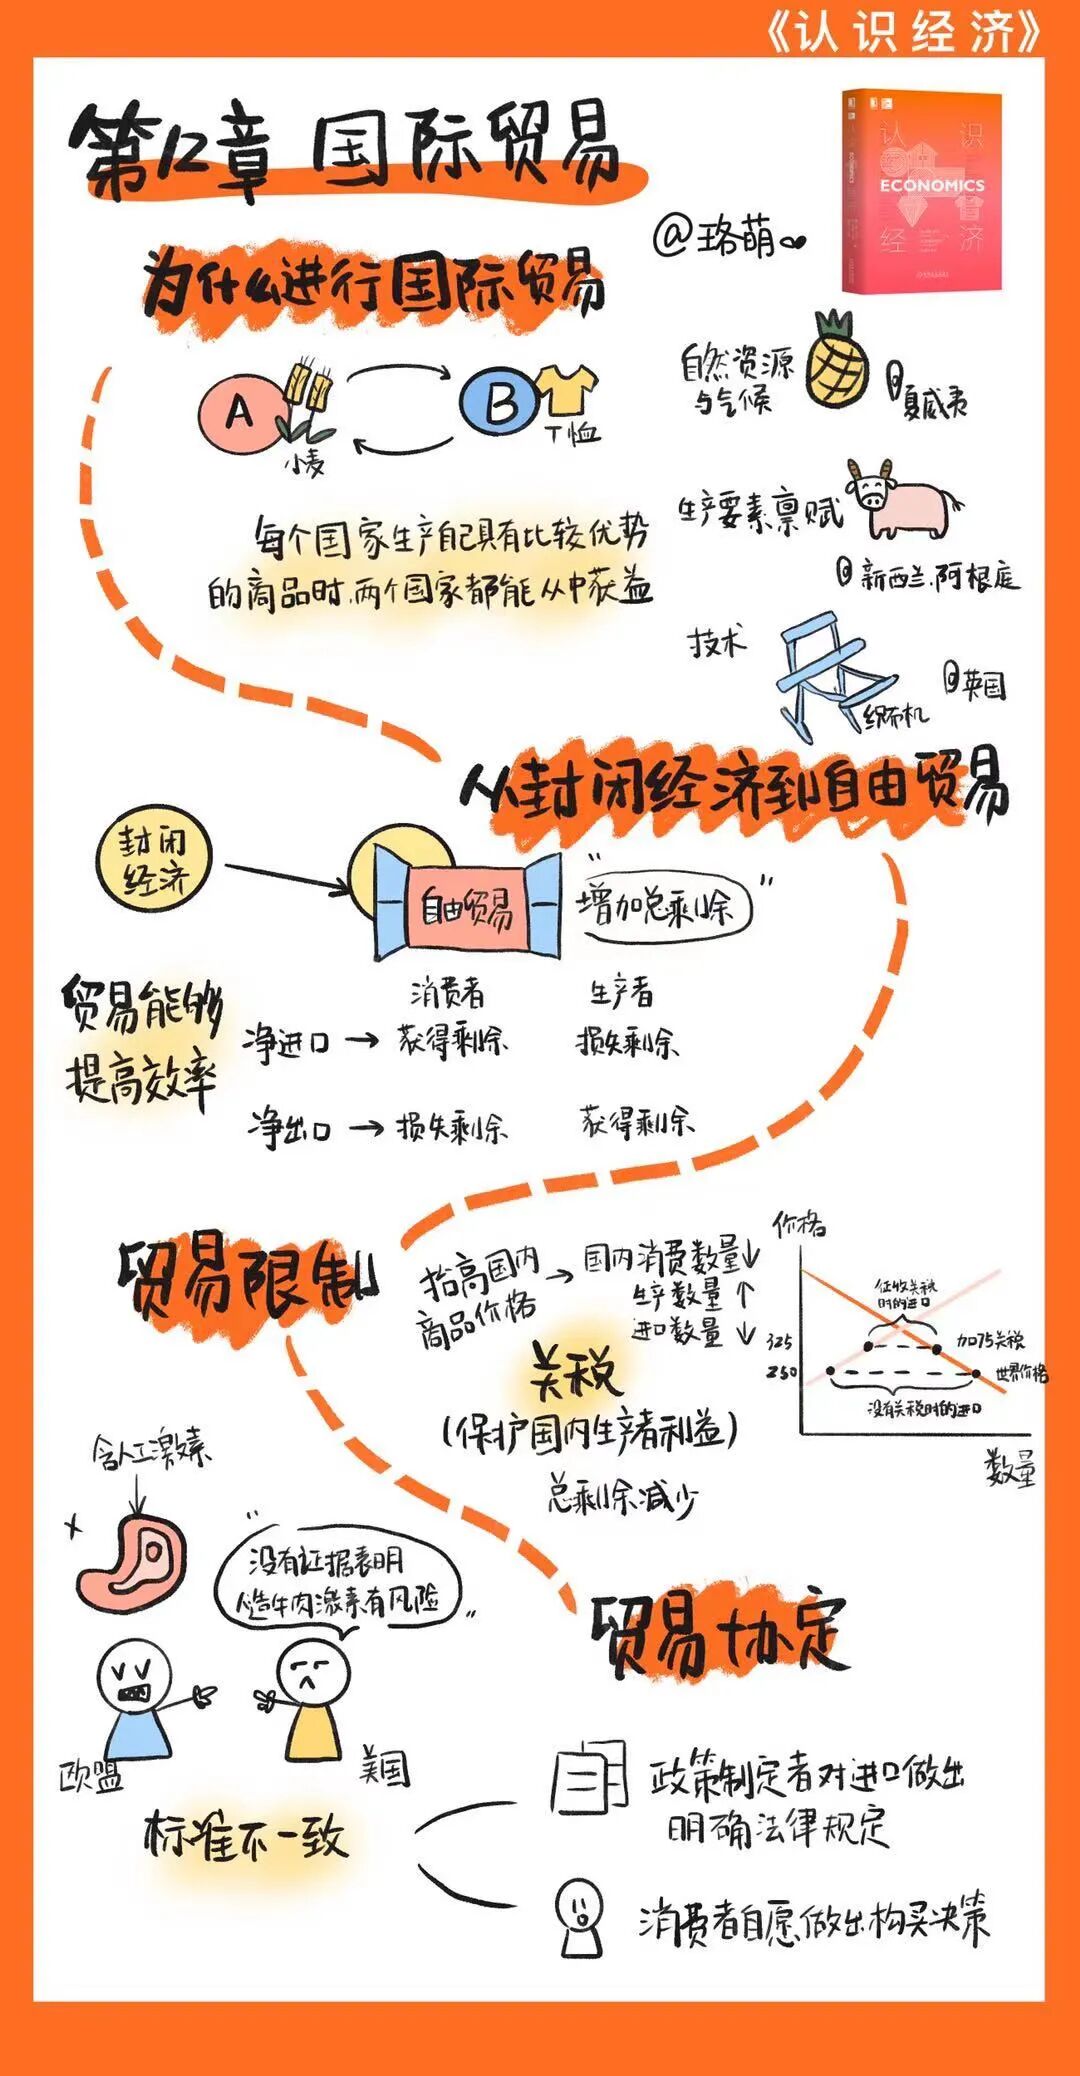 《认识经济》
第12章 国际贸易
认识
ECONOMICS
经济
@珞萌
为什么进行国际贸易
A
B
小麦
T恤
自然资源
与气候
夏威夷
每个国家生产自己具有比较优势
的商品时,两个国家都能从中获益
生产要素禀赋
新西兰、阿根廷
技术
织布机
英国
从封闭经济到自由贸易
封闭
经济
自由贸易
“增加总剩余”
贸易能够
提高效率
消费者 生产者
净进口→获得剩余 损失剩余
净出口→损失剩余 获得剩余
贸易限制
抬高国内
商品价格
→国内消费数量↓
生产数量↑
进口数量↓
关税
(保护国内生产者利益)
总剩余减少
价格
征收关税
时的进口
325
加75关税
250
世界价格
没有关税时的进口
数量
含人工激素
x
“没有证据表明
人造牛肉激素有风险”
欧盟
美国
标准不一致
贸易协定
政策制定者对进口做出
明确法律规定
消费者自愿做出购买决策